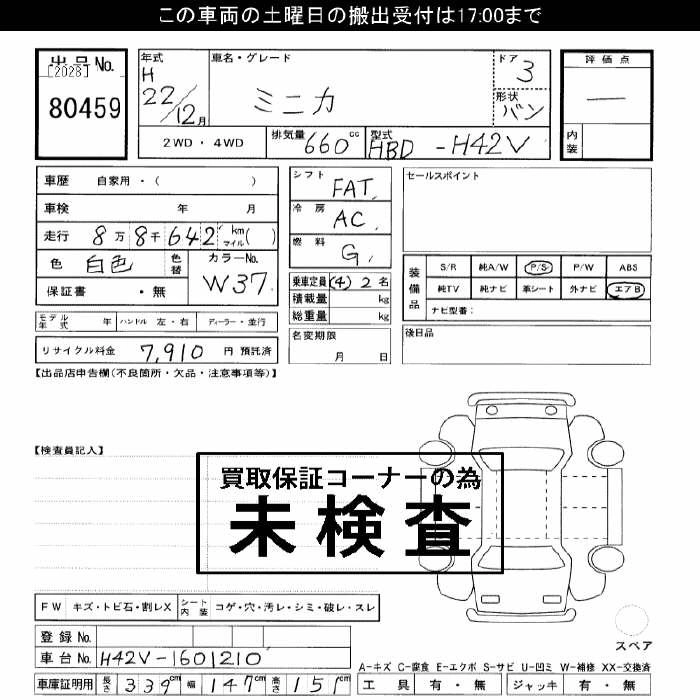 この車両の土曜日の搬出受付は17:00まで
出品No.
[2028]
80459
年式
H
22/12月
車名・グレード
ミニカ
ドア
3
形状
バン
評価点
—
内装
2WD ・ 4WD
排気量 660cc
型式 HBD - H42V
車歴 自家用 ・ ( )
車検 年 月
走行 8万8千642 km マイル( )
色 白色 色替
カラーNo. W37
保証書 ・ 無
シフト FAT
冷房 AC
燃料 G
乗車定員 (4) 2名
積載量 kg
総重量 kg
セールスポイント
装備品
S/R 純A/W P/S P/W ABS
純TV 純ナビ 革シート 外ナビ エアB
ナビ型番:
モデル年式 年 ハンドル 左・右 ディーラー・並行
リサイクル料金 7,910 円 預託済
名変期限
月 日
後日品
【出品店申告欄(不良箇所・欠品・注意事項等)】
【検査員記入】
買取保証コーナーの為
未検査
FW キズ・トビ石・割レX シート内装 コゲ・穴・汚レ・シミ・破レ・スレ
登録No.
車台No. H42V-1601210
スペア
A-キズ C-腐食 E-エクボ S-サビ U-凹ミ W-補修 XX-交換済
車庫証明用 長さ 339cm 幅 147cm 高さ 151cm
工具 有・無 ジャッキ 有・無